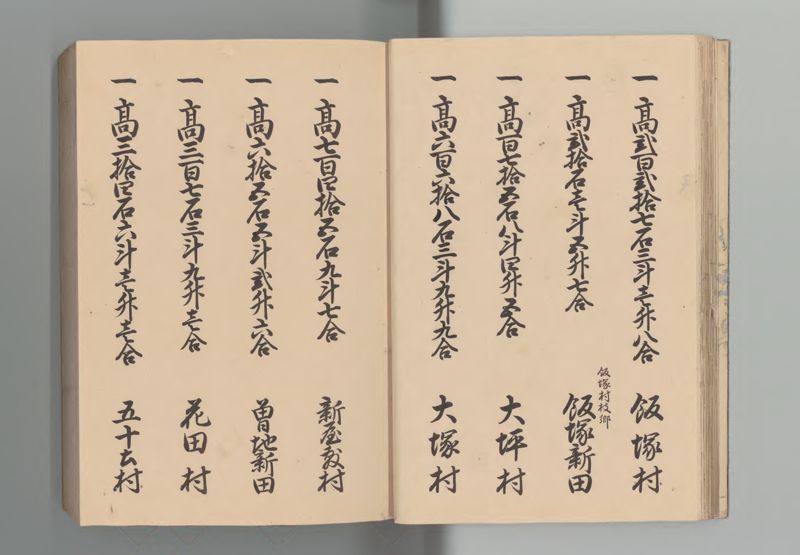 一 高弐百弐拾七石三斗壱升八合 飯塚村
飯塚村枝郷
一 高弐拾石壱斗五升七合 飯塚新田
一 高百七拾五石八斗四升五合 大坪村
一 高六百六拾八石三斗九升九合 大塚村
一 高七百四拾五石九斗七合 新屋敷村
一 高六拾五石五斗弐升六合 曽地新田
一 高三百七石三斗九升壱合 花田村
一 高三拾四石六斗壱升壱合 五十土村